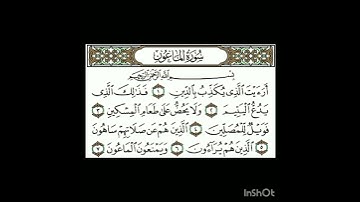 سُورَةُ الْمَاعُونِ
بِسْمِ اللَّهِ الرَّحْمَٰنِ الرَّحِيمِ
أَرَءَيْتَ الَّذِي يُكَذِّبُ بِالدِّينِ ١ فَذَٰلِكَ الَّذِي
يَدُعُّ الْيَتِيمَ ٢ وَلَا يَحُضُّ عَلَىٰ طَعَامِ الْمِسْكِينِ ٣
فَوَيْلٌ لِّلْمُصَلِّينَ ٤ الَّذِينَ هُمْ عَن صَلَاتِهِمْ سَاهُونَ
٥ الَّذِينَ هُمْ يُرَاءُونَ ٦ وَيَمْنَعُونَ الْمَاعُونَ ٧
InShOt